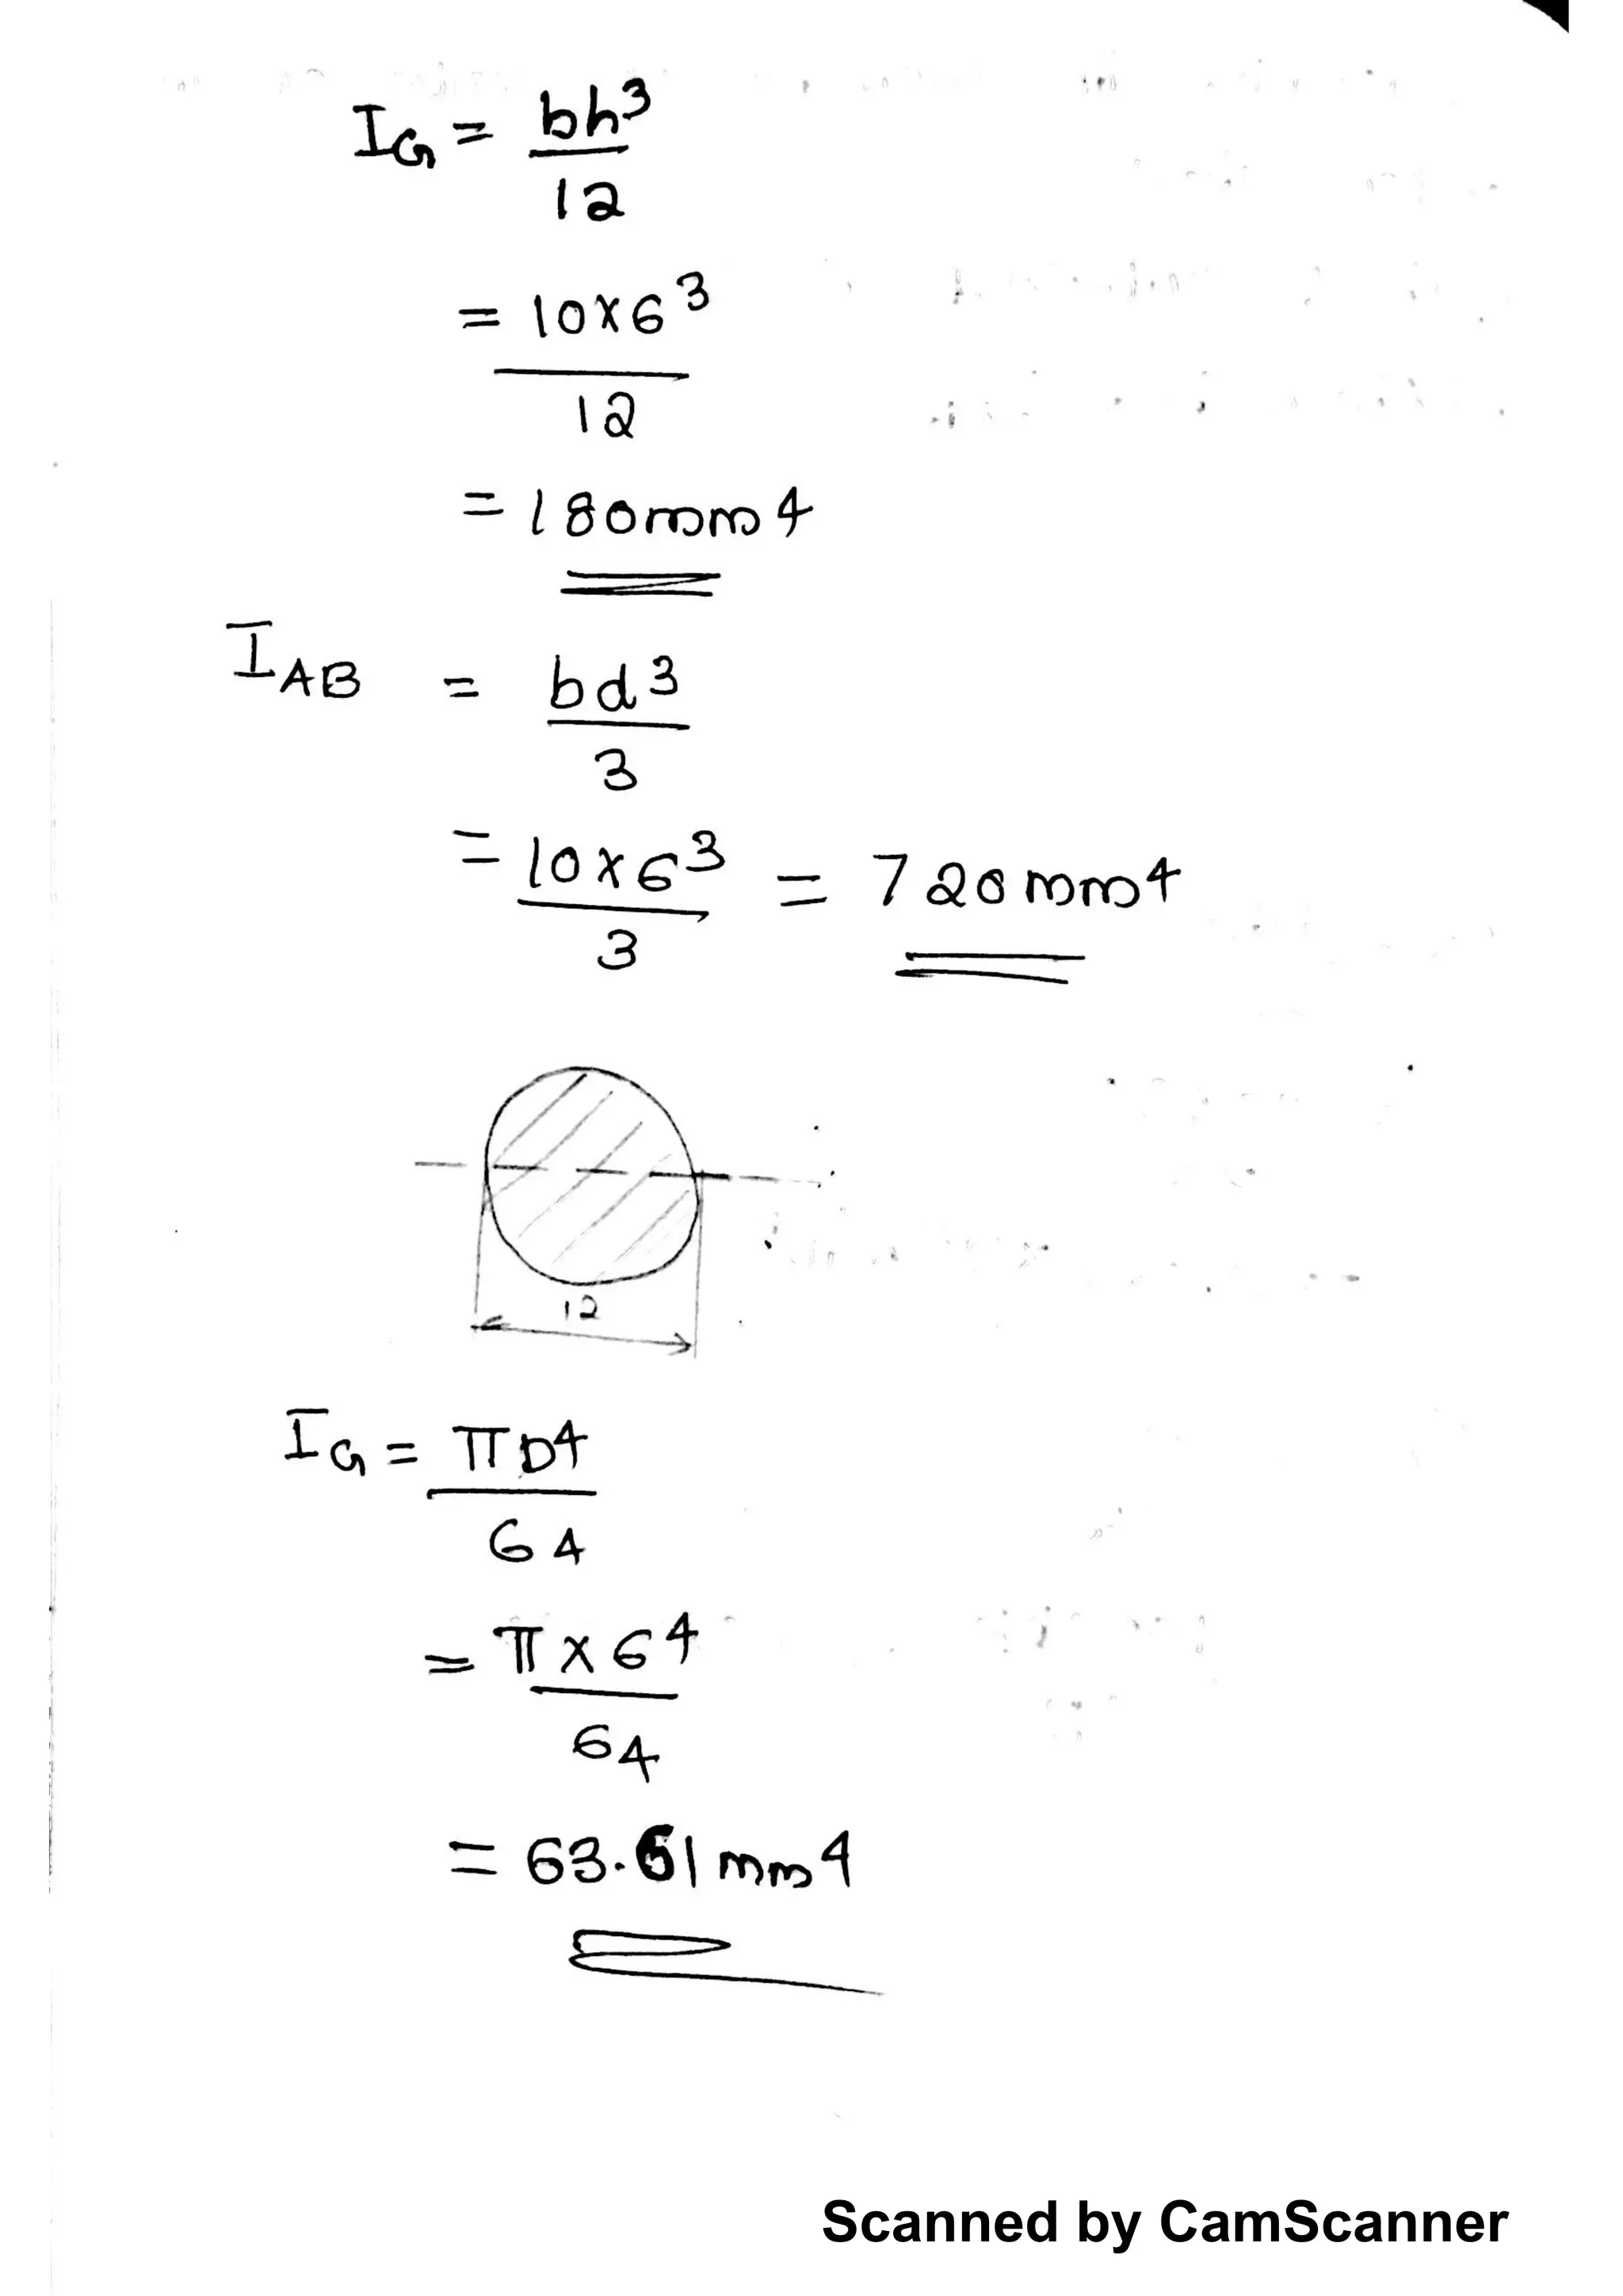 IG = bh³
12
= 10×6³
12
= 180mm4
IAB = bd³
3
= 10×6³ = 720mm4
3
12
IG = πD4
64
= π×6⁴
64
= 63.61mm4
Scanned by CamScanner